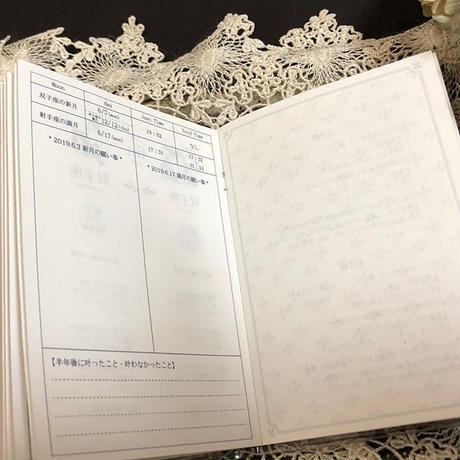 Moon day Just Time Void Time
双子座の新月 6/3(mon) 19:02 なし
12/12(thu)
射手座の満月 6/17(mon) 17:31 17:32
* 2019.6.3 新月の願い事 * * 2019.6.17 満月の願い事 *
【半年後に叶ったこと・叶わなかったこと】